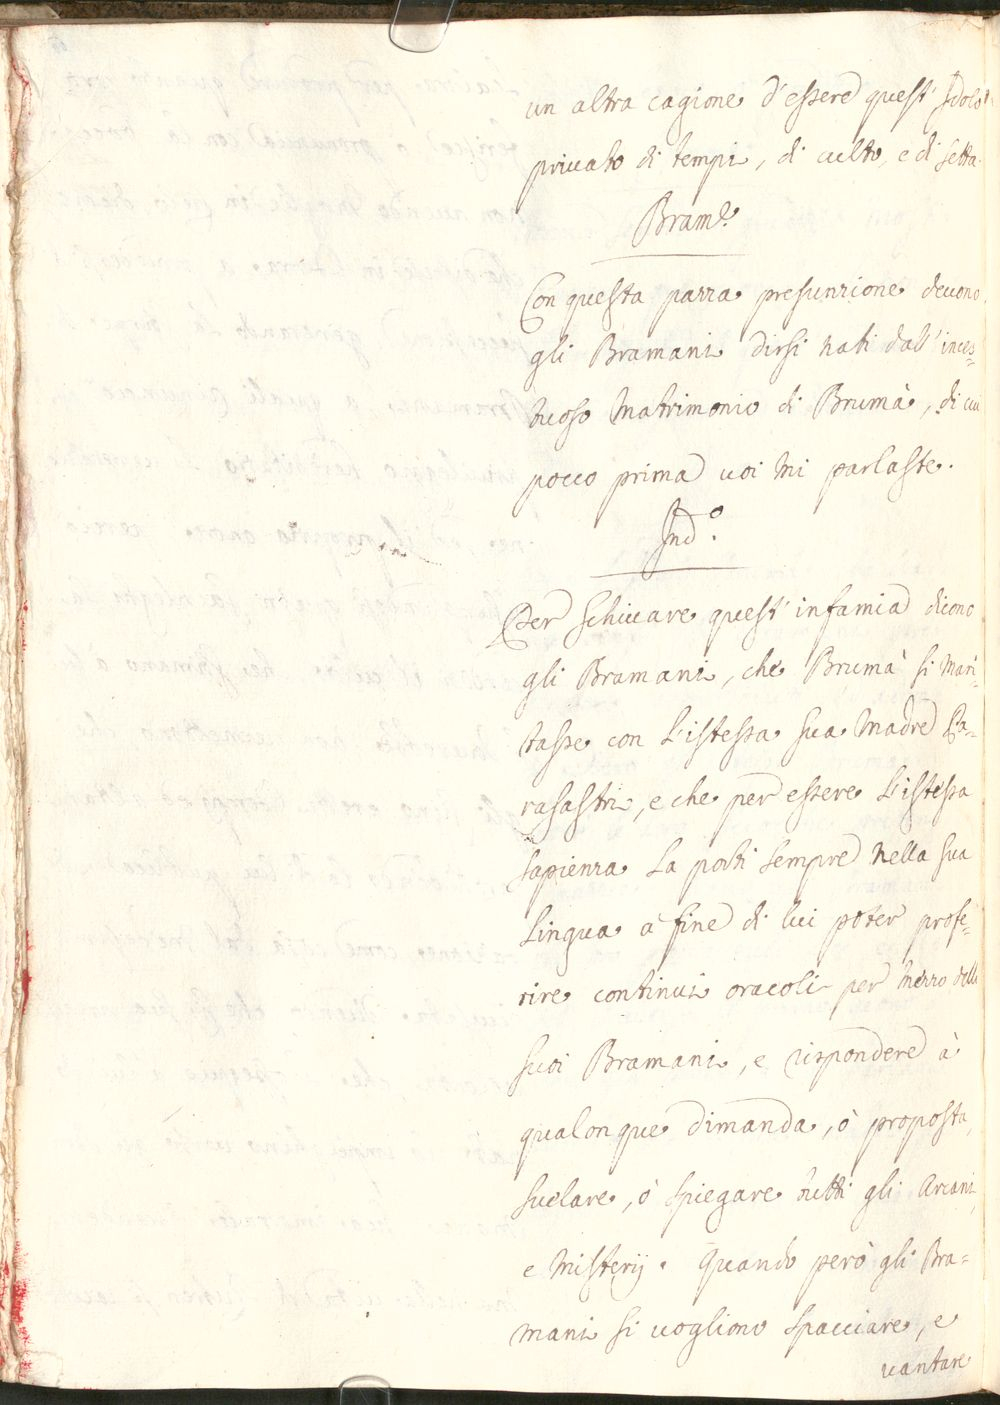 un altra cagione d'essere quest' Idolo
privato di tempi, di culto, e di setta.
Bram.e
Con questa pazza presunzione devono
gli Bramani dirsi nati dall' inces=
tuoso Matrimonio di Brumà, di cui
pocco prima voi mi parlaste.
Ind.o
Per schivare quest' infamia dicono
gli Bramani, che Brumà si mari=
tasse con l'istessa sua Madre Pa=
rasastri, e che per essere l'istessa
sapienza la porti sempre nella sua
lingua a fine di lui poter profe=
rire continui oracoli per mezzo delli
suoi Bramani, e rispondere à
qualonque dimanda, ò proposta,
svelare, ò spiegare tutti gli Arcani,
e Misterij. Quando però gli Bra=
mani si vogliono spacciare, e
vantare